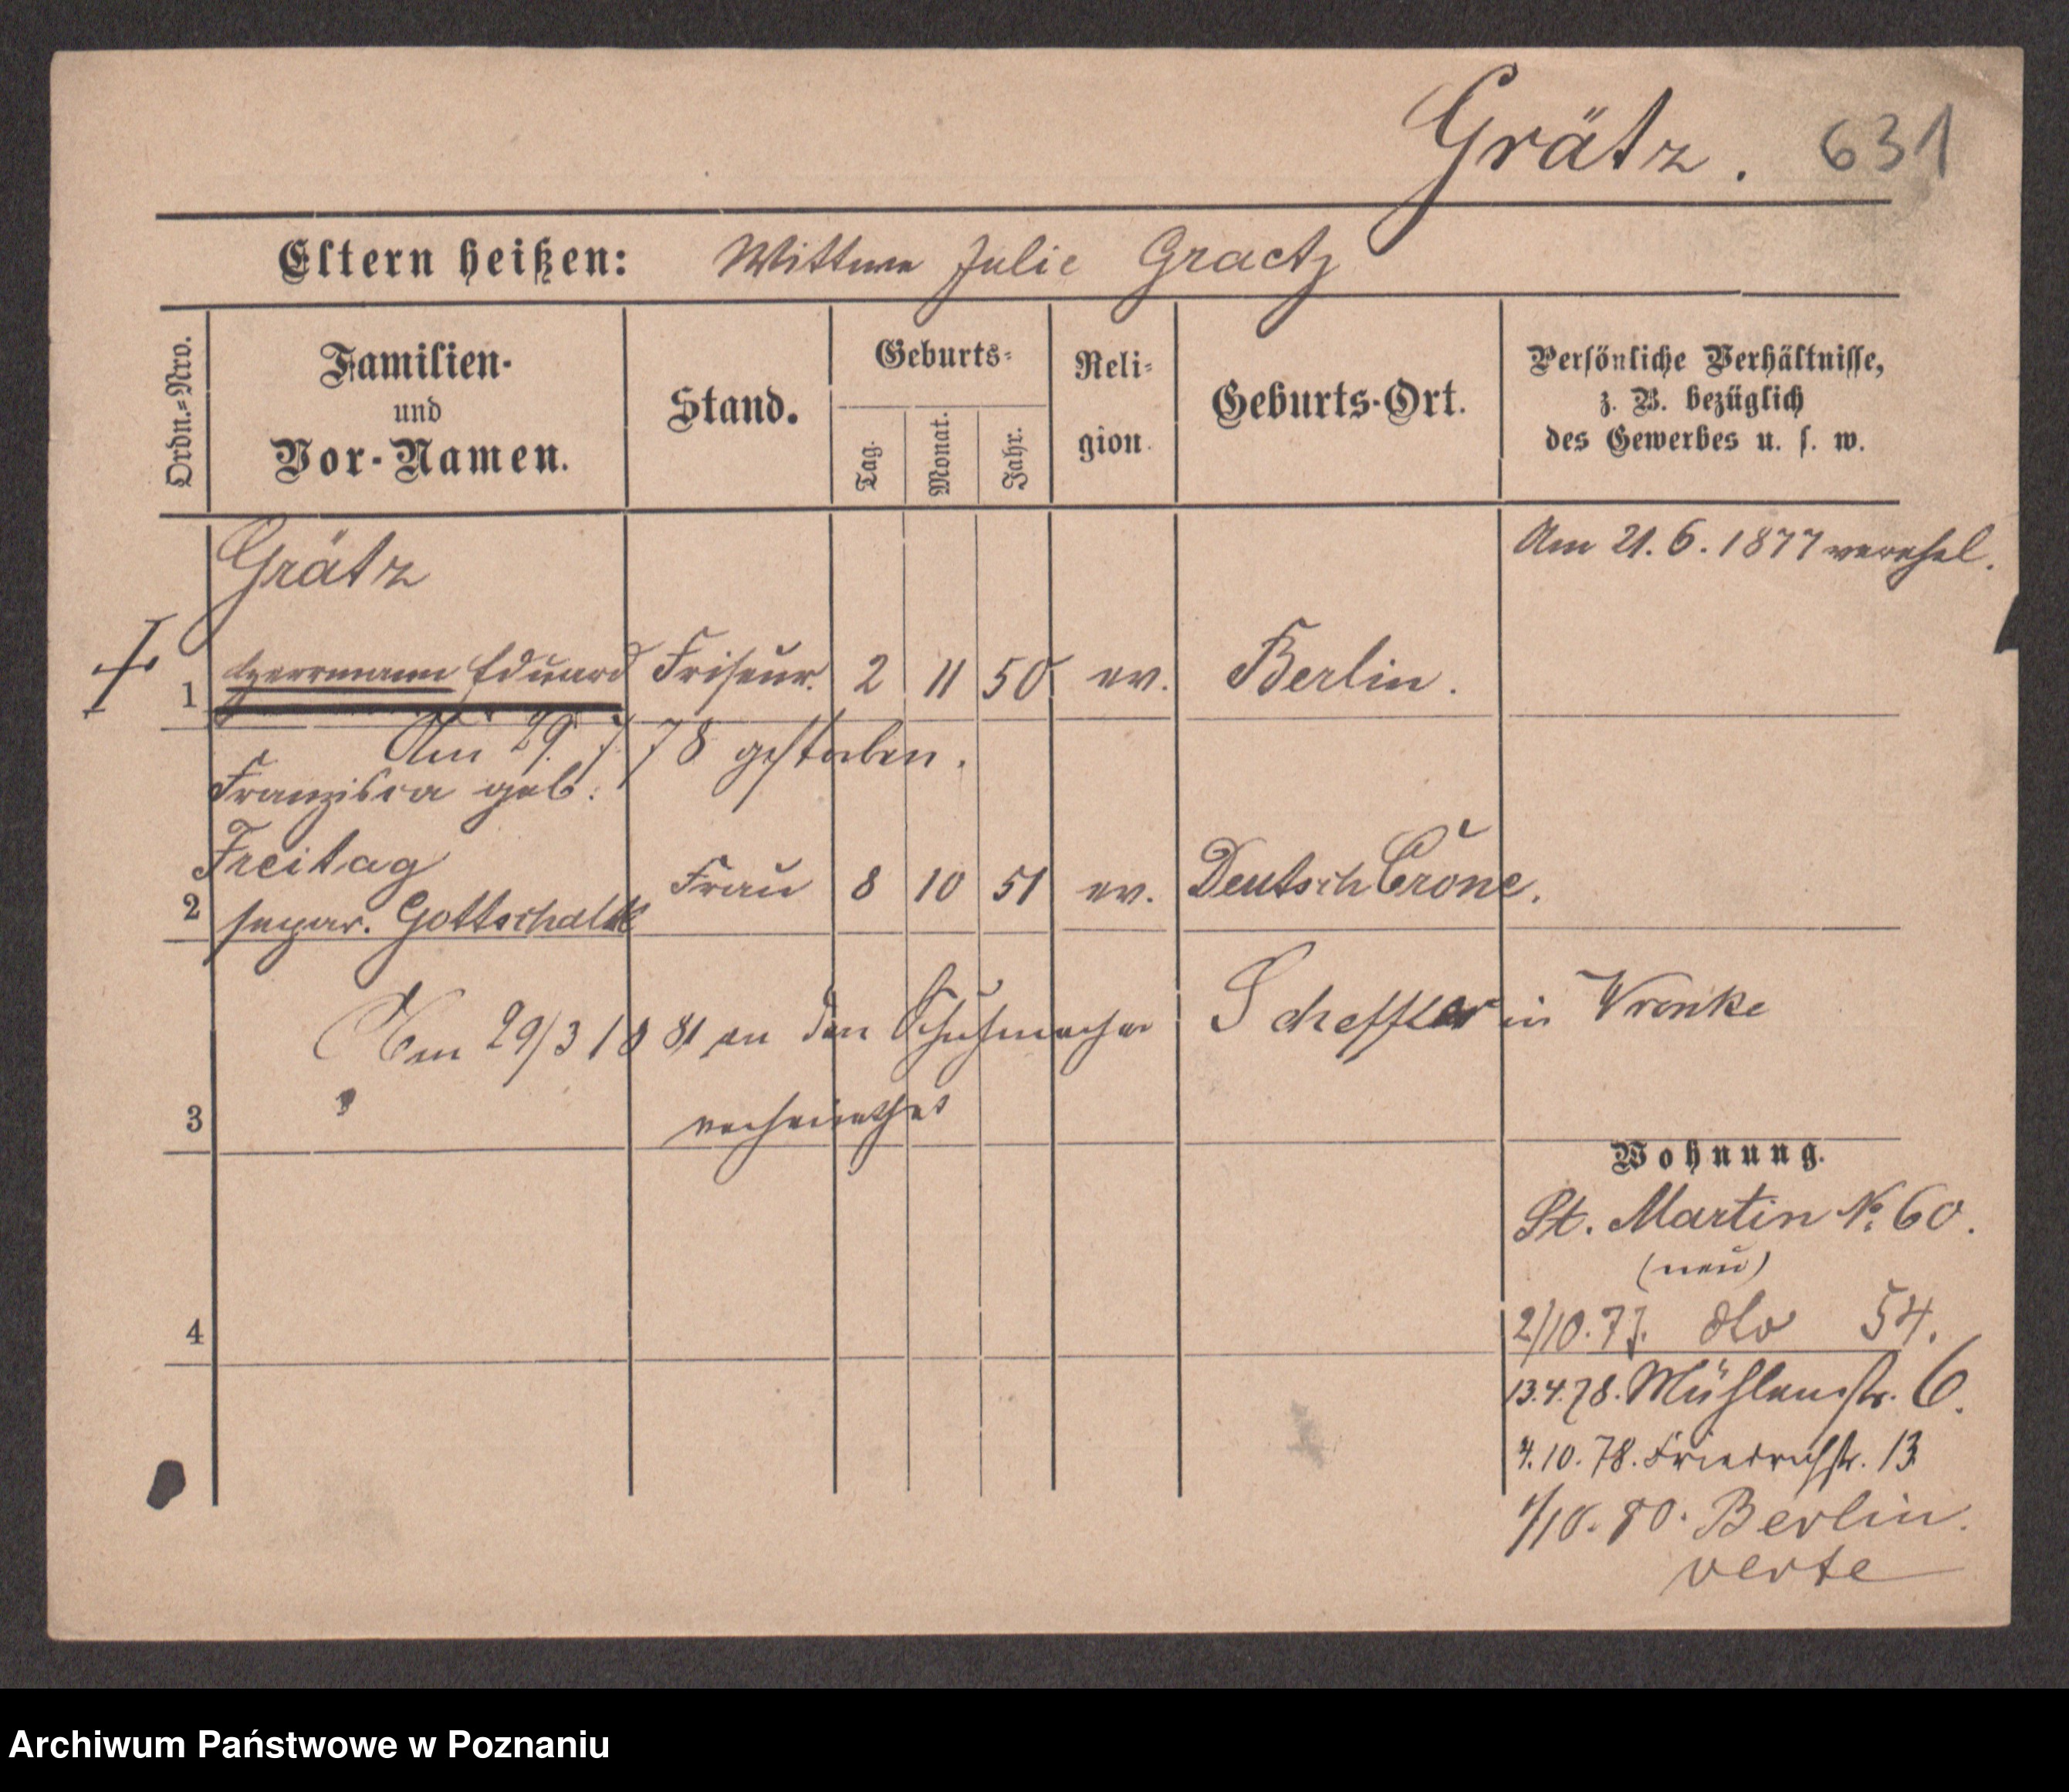 Grätz. 631
Eltern heißen: Wittwe Julie Graetz
Ordn.=Nro.
Familien-
und
Vor-Namen.
Stand.
Geburts=
Tag.
Monat.
Jahr.
Reli=
gion.
Geburts-Ort.
Persönliche Verhältnisse,
z. B. bezüglich
des Gewerbes u. s. w.
Am 21. 6. 1877 verehel.
Grätz
1 Herrmann Eduard Friseur. 2 11 50 ev. Berlin.
Am 29. 7 78 gestorben.
Franziska geb.
Freitag
2 separ. Gottschalk Frau 8 10 51 ev. Deutsch Crone.
Am 29/3 1881 an den Schuhmacher Scheffler in Wronke
3 verheirathet
Wohnung.
St. Martin No. 60.
(neu)
4 2/10. 77. dto 54.
13.4.78. Mühlenstr. 6.
4.10.78. Friedrichstr. 13
1/10. 80. Berlin.
verte
Archiwum Państwowe w Poznaniu